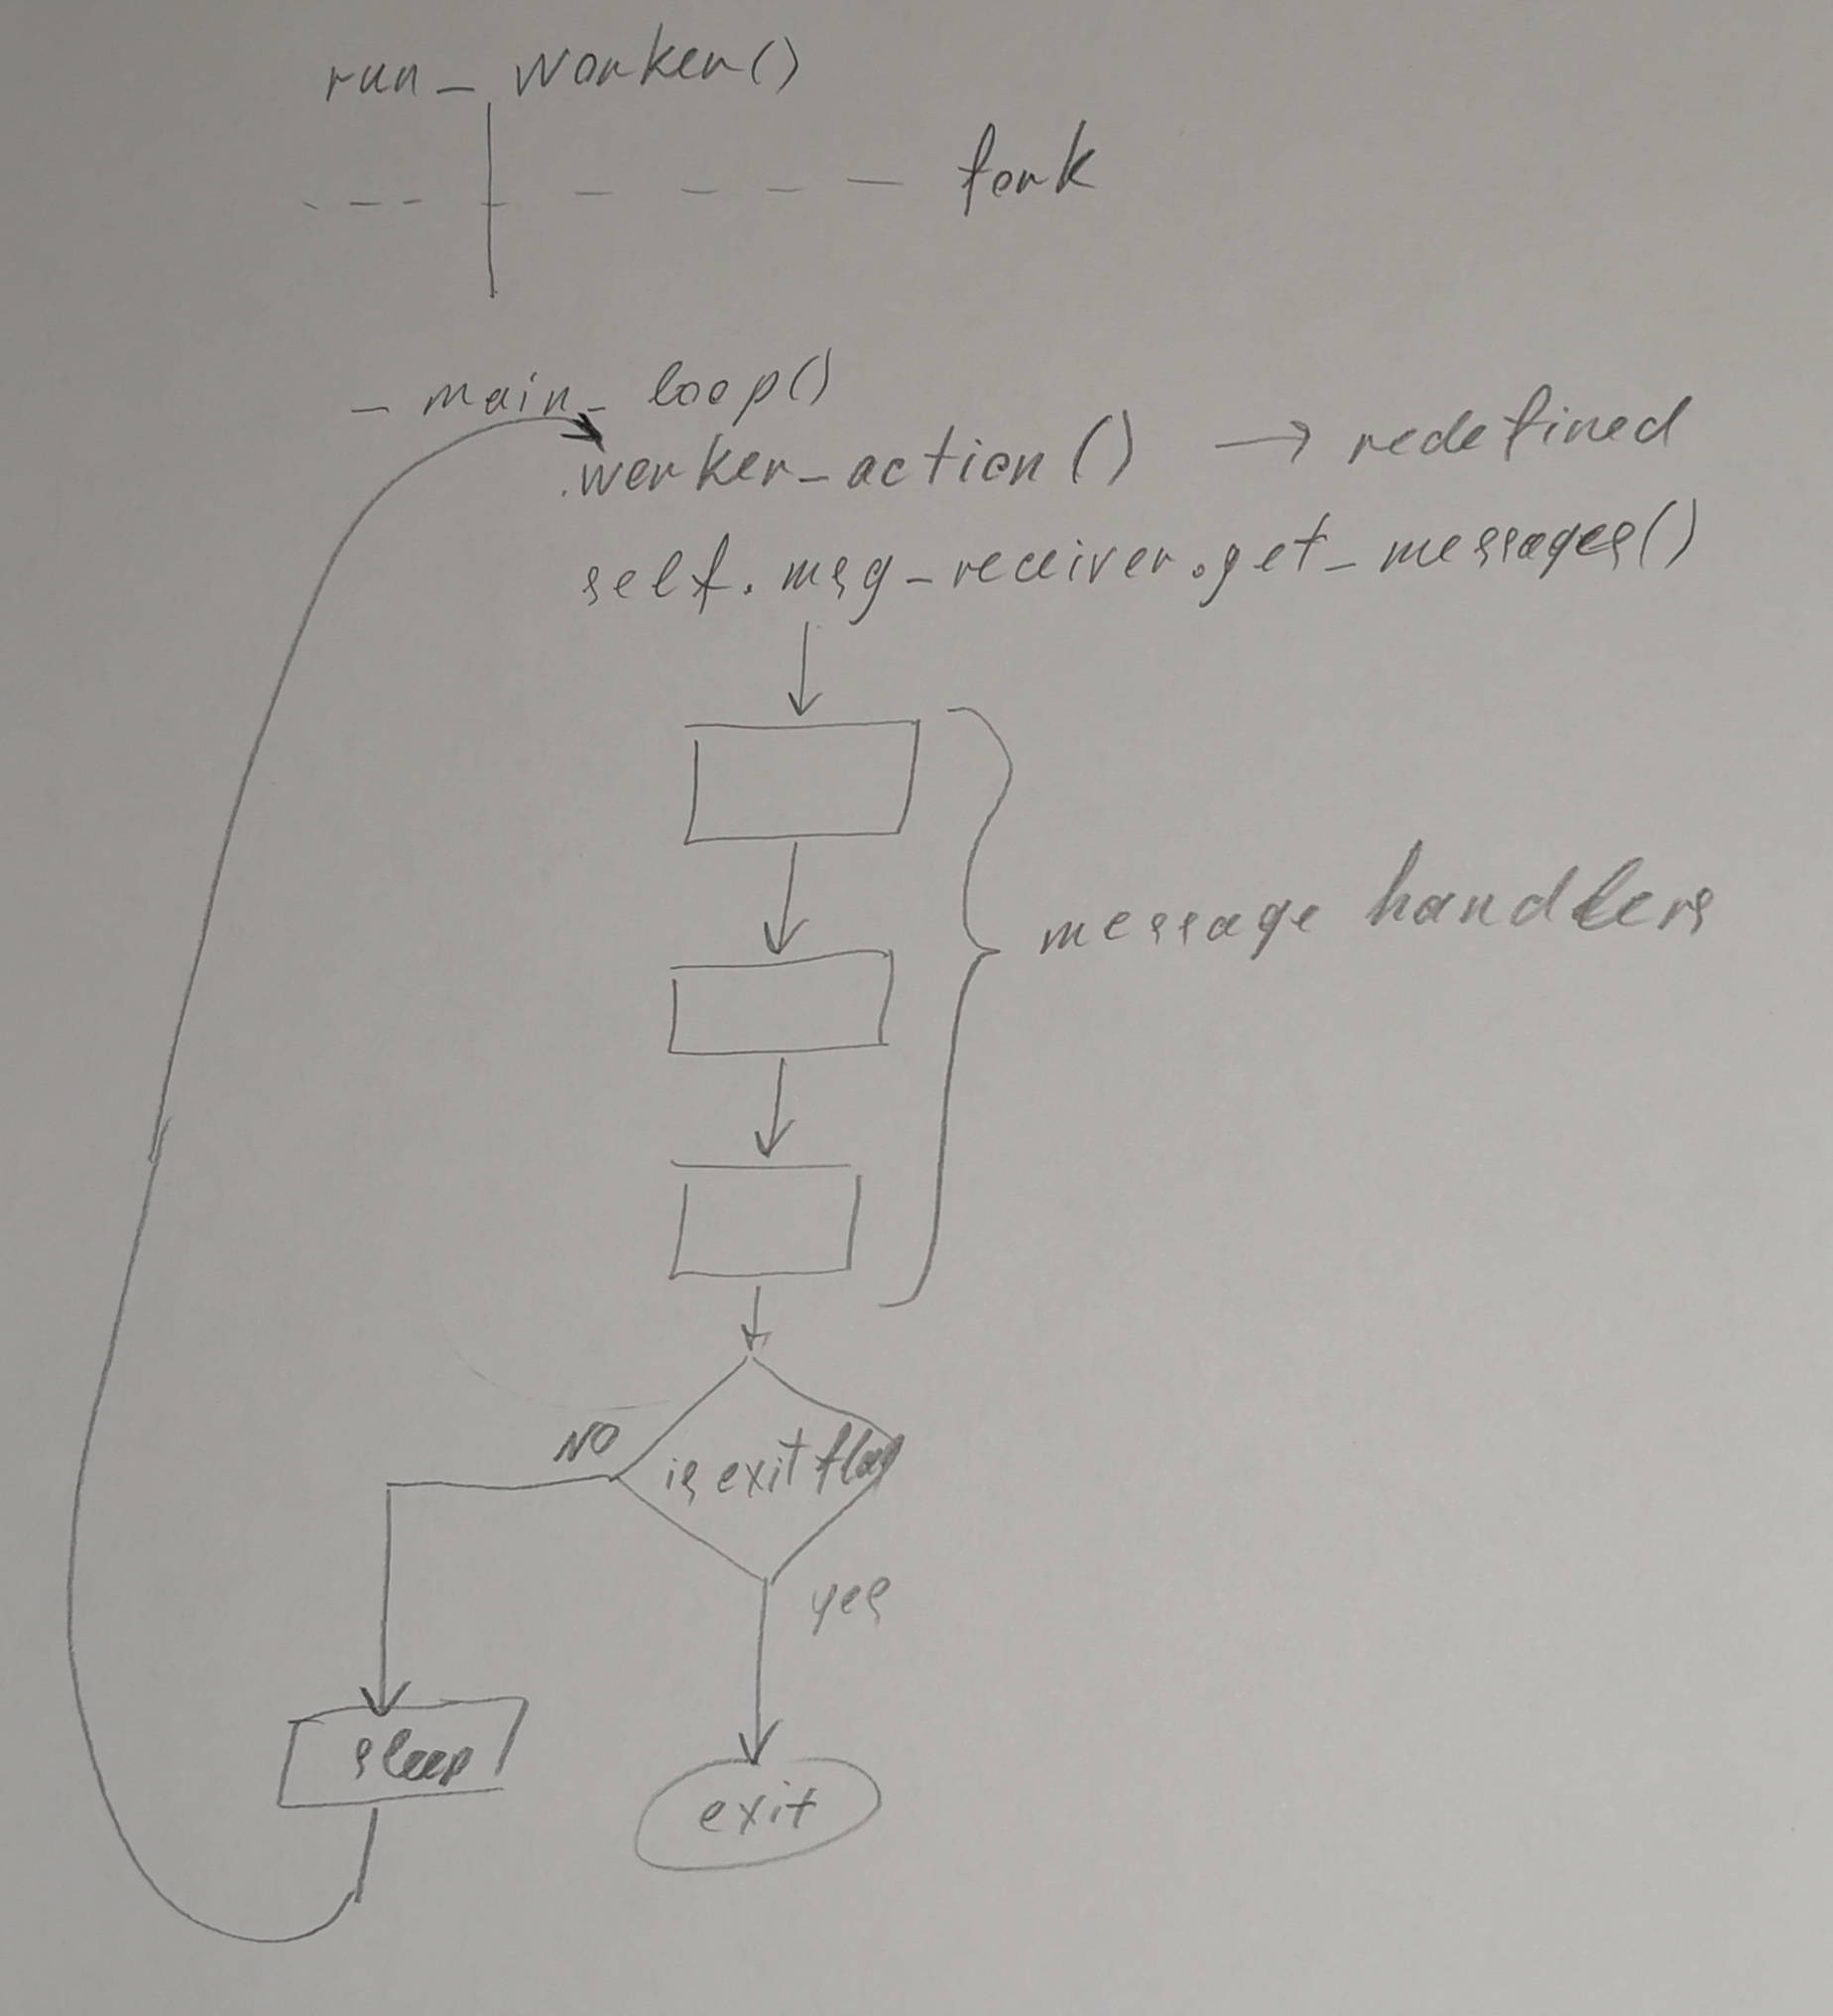 run_worker()
fork
_main_loop()
.worker_action() → redefined
self.msg_receiver.get_messages()
message handlers
NO
is exit flag
yes
sleep
exit